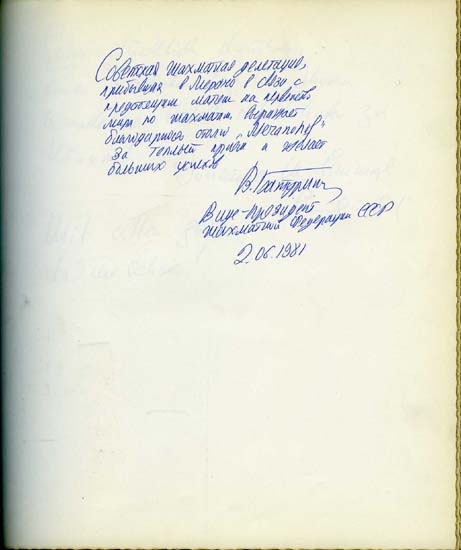 Советская шахматная делегация,
прибывшая в Мерано в связи с
предстоящим матчем на первенство
мира по шахматам, выражает
благодарность отелю „Метрополь“
за теплый прием и желает
больших успехов
В. Батурин
Вице-президент
шахматной Федерации СССР
2.06.1981